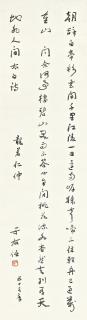 朝辞白帝彩云间千里江陵一日还两岸猿声啼不住轻舟已过万
重山 问余何意栖碧山笑而不答心自闲桃花流水杳然去别有天
地非人间 太白诗
于右任